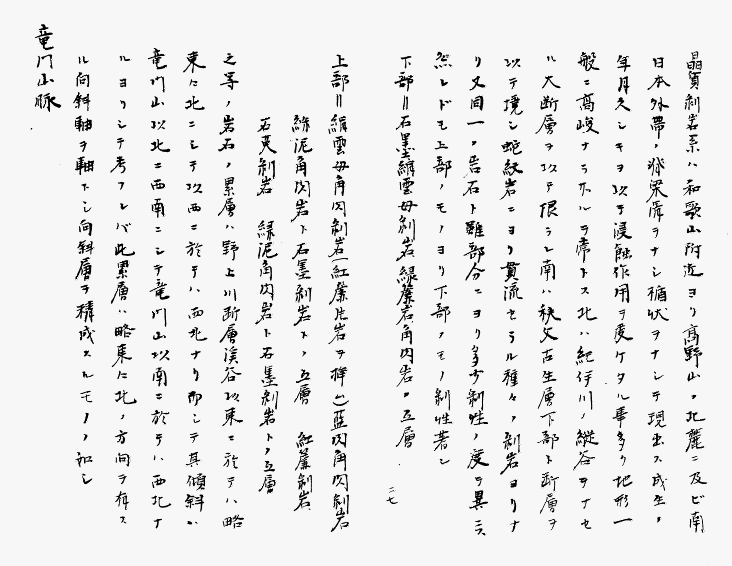 晶質剝岩系ハ和歌山附近ヨリ高野山ノ北麓ニ及ビ南
日本外帯ノ ヲナシ楯状ヲナシテ現出ス成生ノ
年月久シキヲ以テ浸蝕作用ヲ受ケタル事多ク地形一
般ニ高峻ナラザルヲ常トス北ハ紀伊川ノ縦谷ヲナセ
ル大断層ヲ以テ限ラレ南ハ秩父古生層下部ト断層ヲ
以テ境シ蛇紋岩ニヨリ貫流セラル種々ノ剝岩ヨリナ
リ又同一ノ岩石ト雖部分ニヨリ多少剝性ノ度ヲ異ニス
然レドモ上部ノモノヨリ下部ノモノ剝性著シ
下部＝石墨絹雲母剝岩緑簾岩角閃岩ノ互層
二七
上部＝絹雲母角閃剝岩(紅簾片岩ヲ 藍閃角閃剝岩
緑泥角閃岩ト石墨剝岩トノ互層 紅簾剝岩
石英剝岩 緑泥角閃岩ト石墨剝岩トノ互層
之等ノ岩石ノ累層ハ野上川断層渓谷以東ニ於テハ略
東に北ニシテ以西ニ於テハ西北ナリ而シテ其傾斜ハ
竜門山以北ニ西南ニシテ竜門山以南ニ於テハ西北ナ
ルヨリシテ考フレバ此累層ハ略東に北ノ方向ヲ有ス
ル向斜軸ヲ軸トシ向斜層ヲ構成スルモノノ如シ
竜門山脈